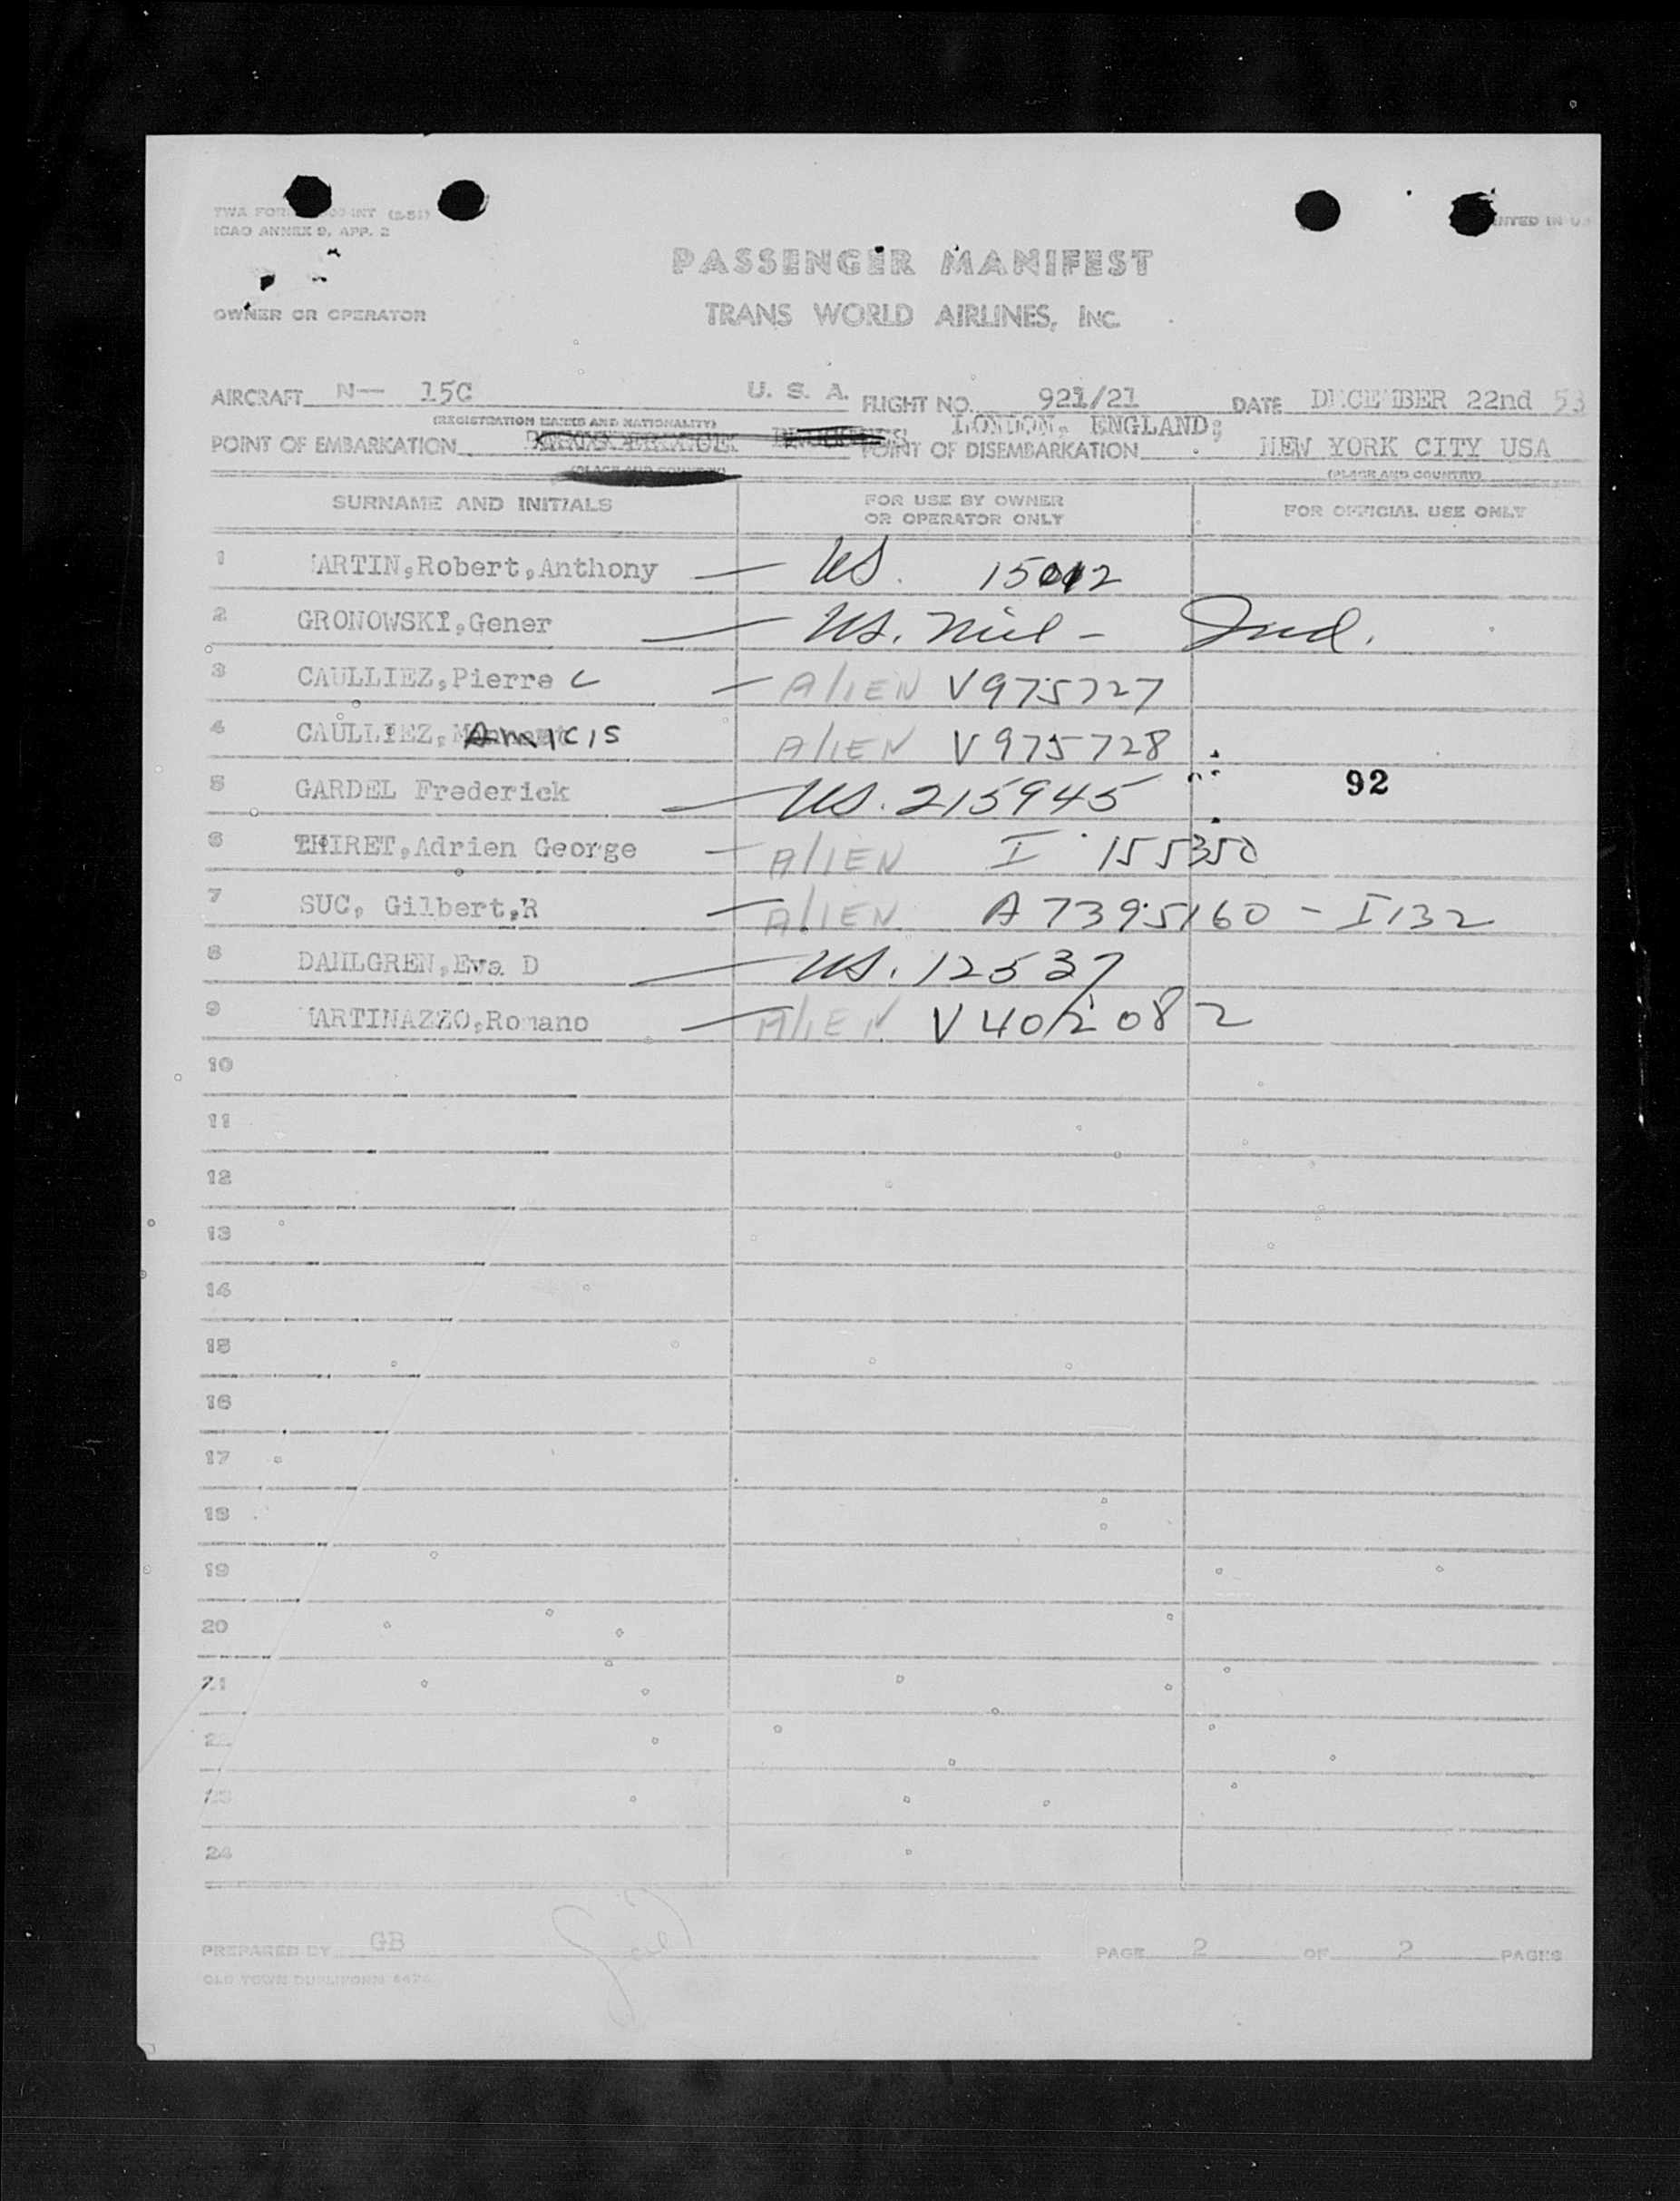 TWA FORM INT
ICAO ANNEX 9, APP. 2
PRINTED IN U
PASSENGER MANIFEST
OWNER OR OPERATOR TRANS WORLD AIRLINES, INC.
AIRCRAFT N— 15C U. S. A. FLIGHT NO. 921/21 DATE DECEMBER 22nd 53
(REGISTRATION MARKS AND NATIONALITY) LONDON, ENGLAND;
POINT OF EMBARKATION POINT OF DISEMBARKATION NEW YORK CITY USA
(PLACE AND COUNTRY) (PLACE AND COUNTRY)
SURNAME AND INITIALS FOR USE BY OWNER OR OPERATOR ONLY FOR OFFICIAL USE ONLY
1 MARTIN,Robert,Anthony — US. 15012
2 GRONOWSKI,Gener — US. Mil - Ind.
3 CAULLIEZ,Pierre C — ALIEN V975727
4 CAULLIEZ, Amicis ALIEN V975728
5 GARDEL Frederick — US. 215945 92
6 THIRET,Adrien George — ALIEN I 155350
7 SUC, Gilbert,R — ALIEN A7395160 - I132
8 DAHLGREN,Eva D — US. 12537
9 MARTINAZZO,Romano — ALIEN V402082
10
11
12
13
14
15
16
17
18
19
20
21
22
23
24
PREPARED BY GB PAGE 2 OF 2 PAGES
OLD TOWN DUPLIFORM